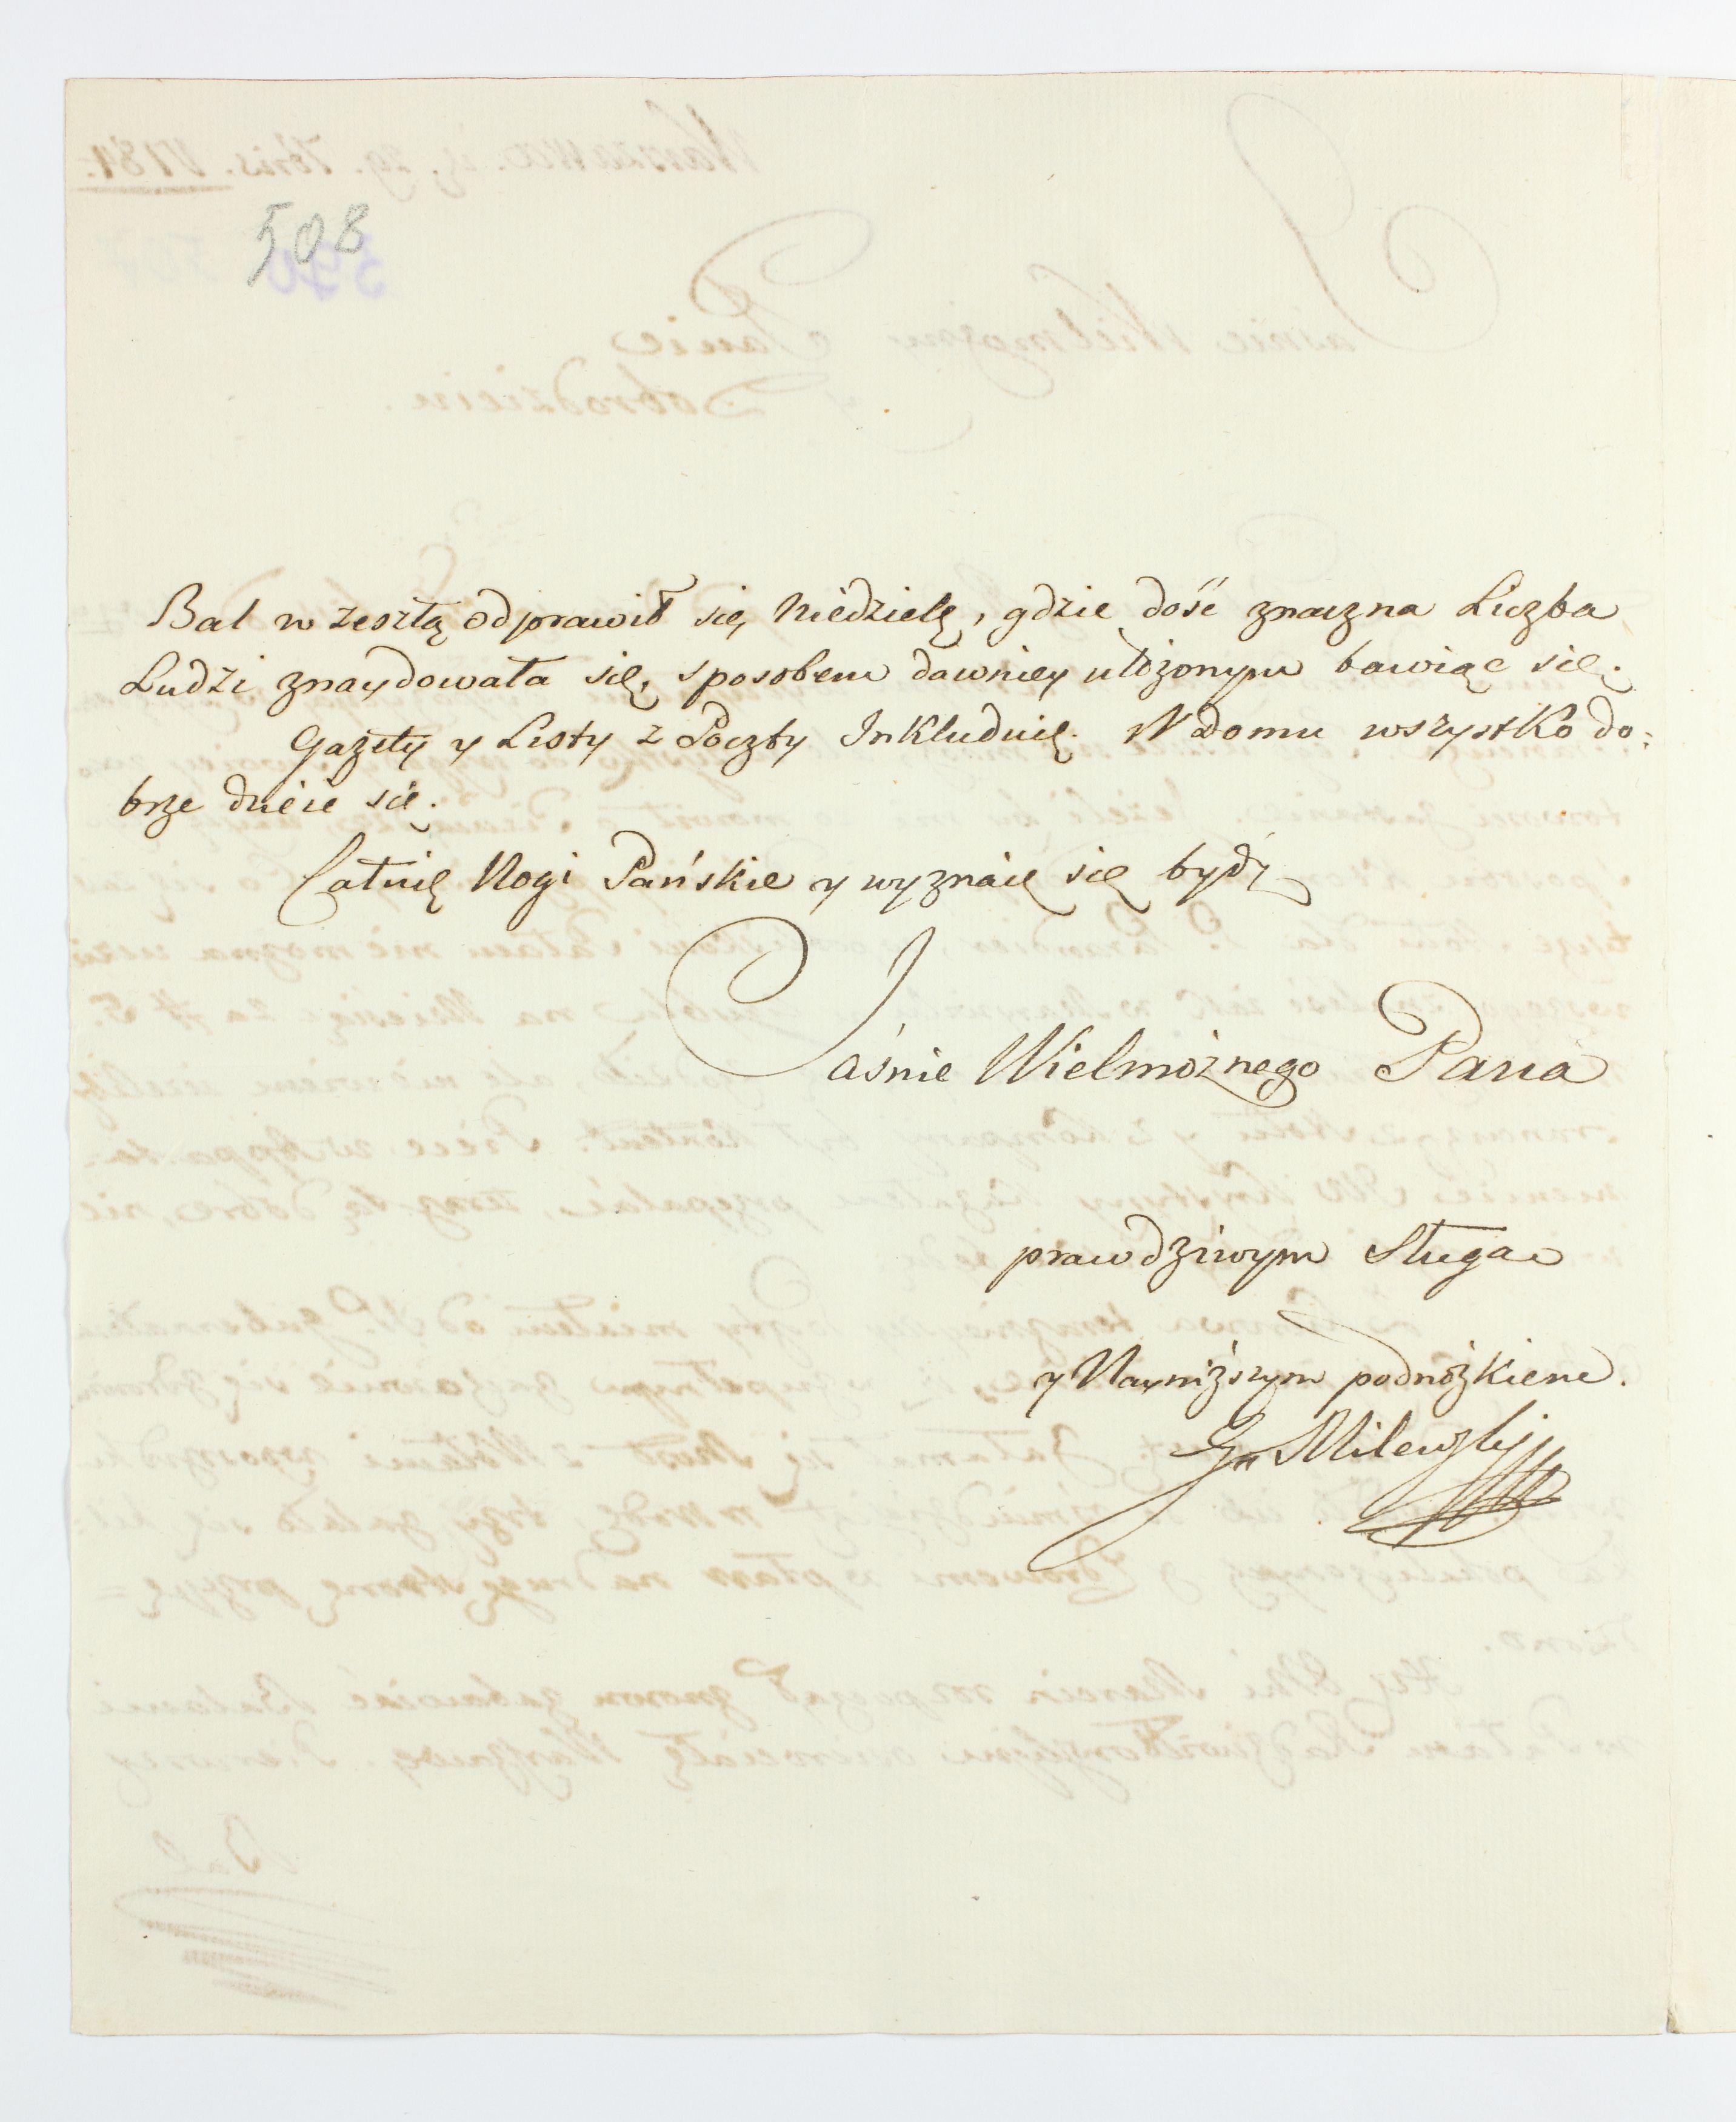 508
Bal w zeszłą odprawił się Niedzielę, gdzie dość znaczna Liczba
Ludzi znaydowała się, sposobem dawniey ułożonym bawiąc się.
Gazety y Listy z Poczty Inkluduię. W Domu wszystko do:
brze dzieie się.
Całuię Nogi Pańskie y wyznaię się bydź
Jaśnie Wielmożnego Pana
prawdziwym Sługą
y Nayniższym podnóżkiem.
Milewski